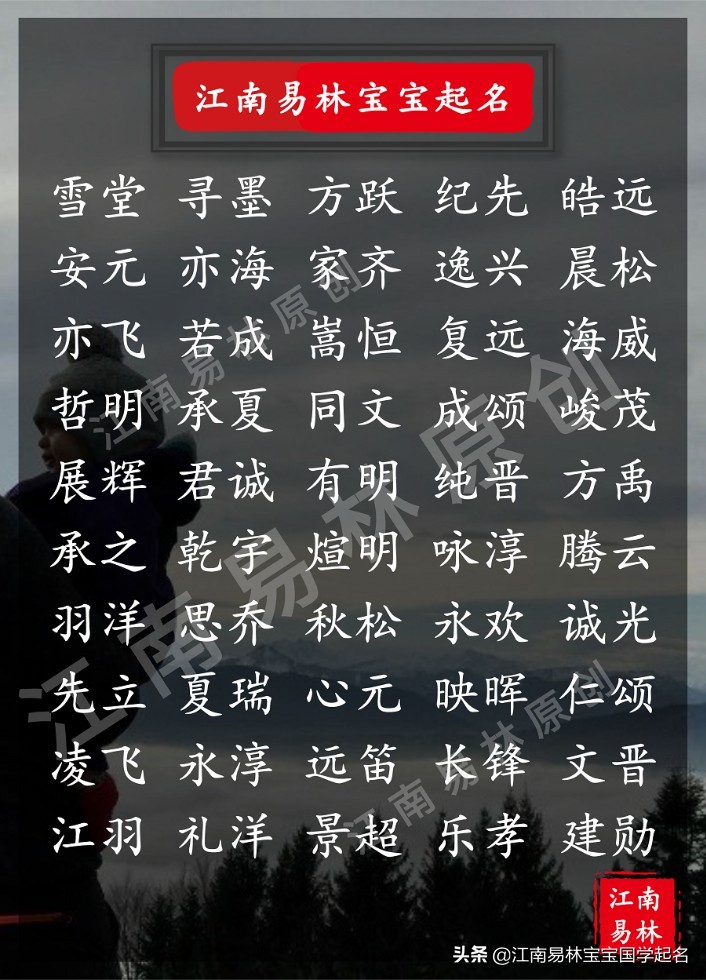 江南易林宝宝起名
雪堂 寻墨 方跃 纪先 皓远
安元 亦海 家齐 逸兴 晨松
亦飞 若成 嵩恒 复远 海威
哲明 承夏 同文 成颂 峻茂
展辉 君诚 有明 纯晋 方禹
承之 乾宇 煊明 咏淳 腾云
羽洋 思乔 秋松 永欢 诚光
先立 夏瑞 心元 映晖 仁颂
凌飞 永淳 远笛 长锋 文晋
江羽 礼洋 景超 乐孝 建勋
江南易林原创
江南易林原创
江南易林原创
江南
易林
头条 @江南易林宝宝国学起名